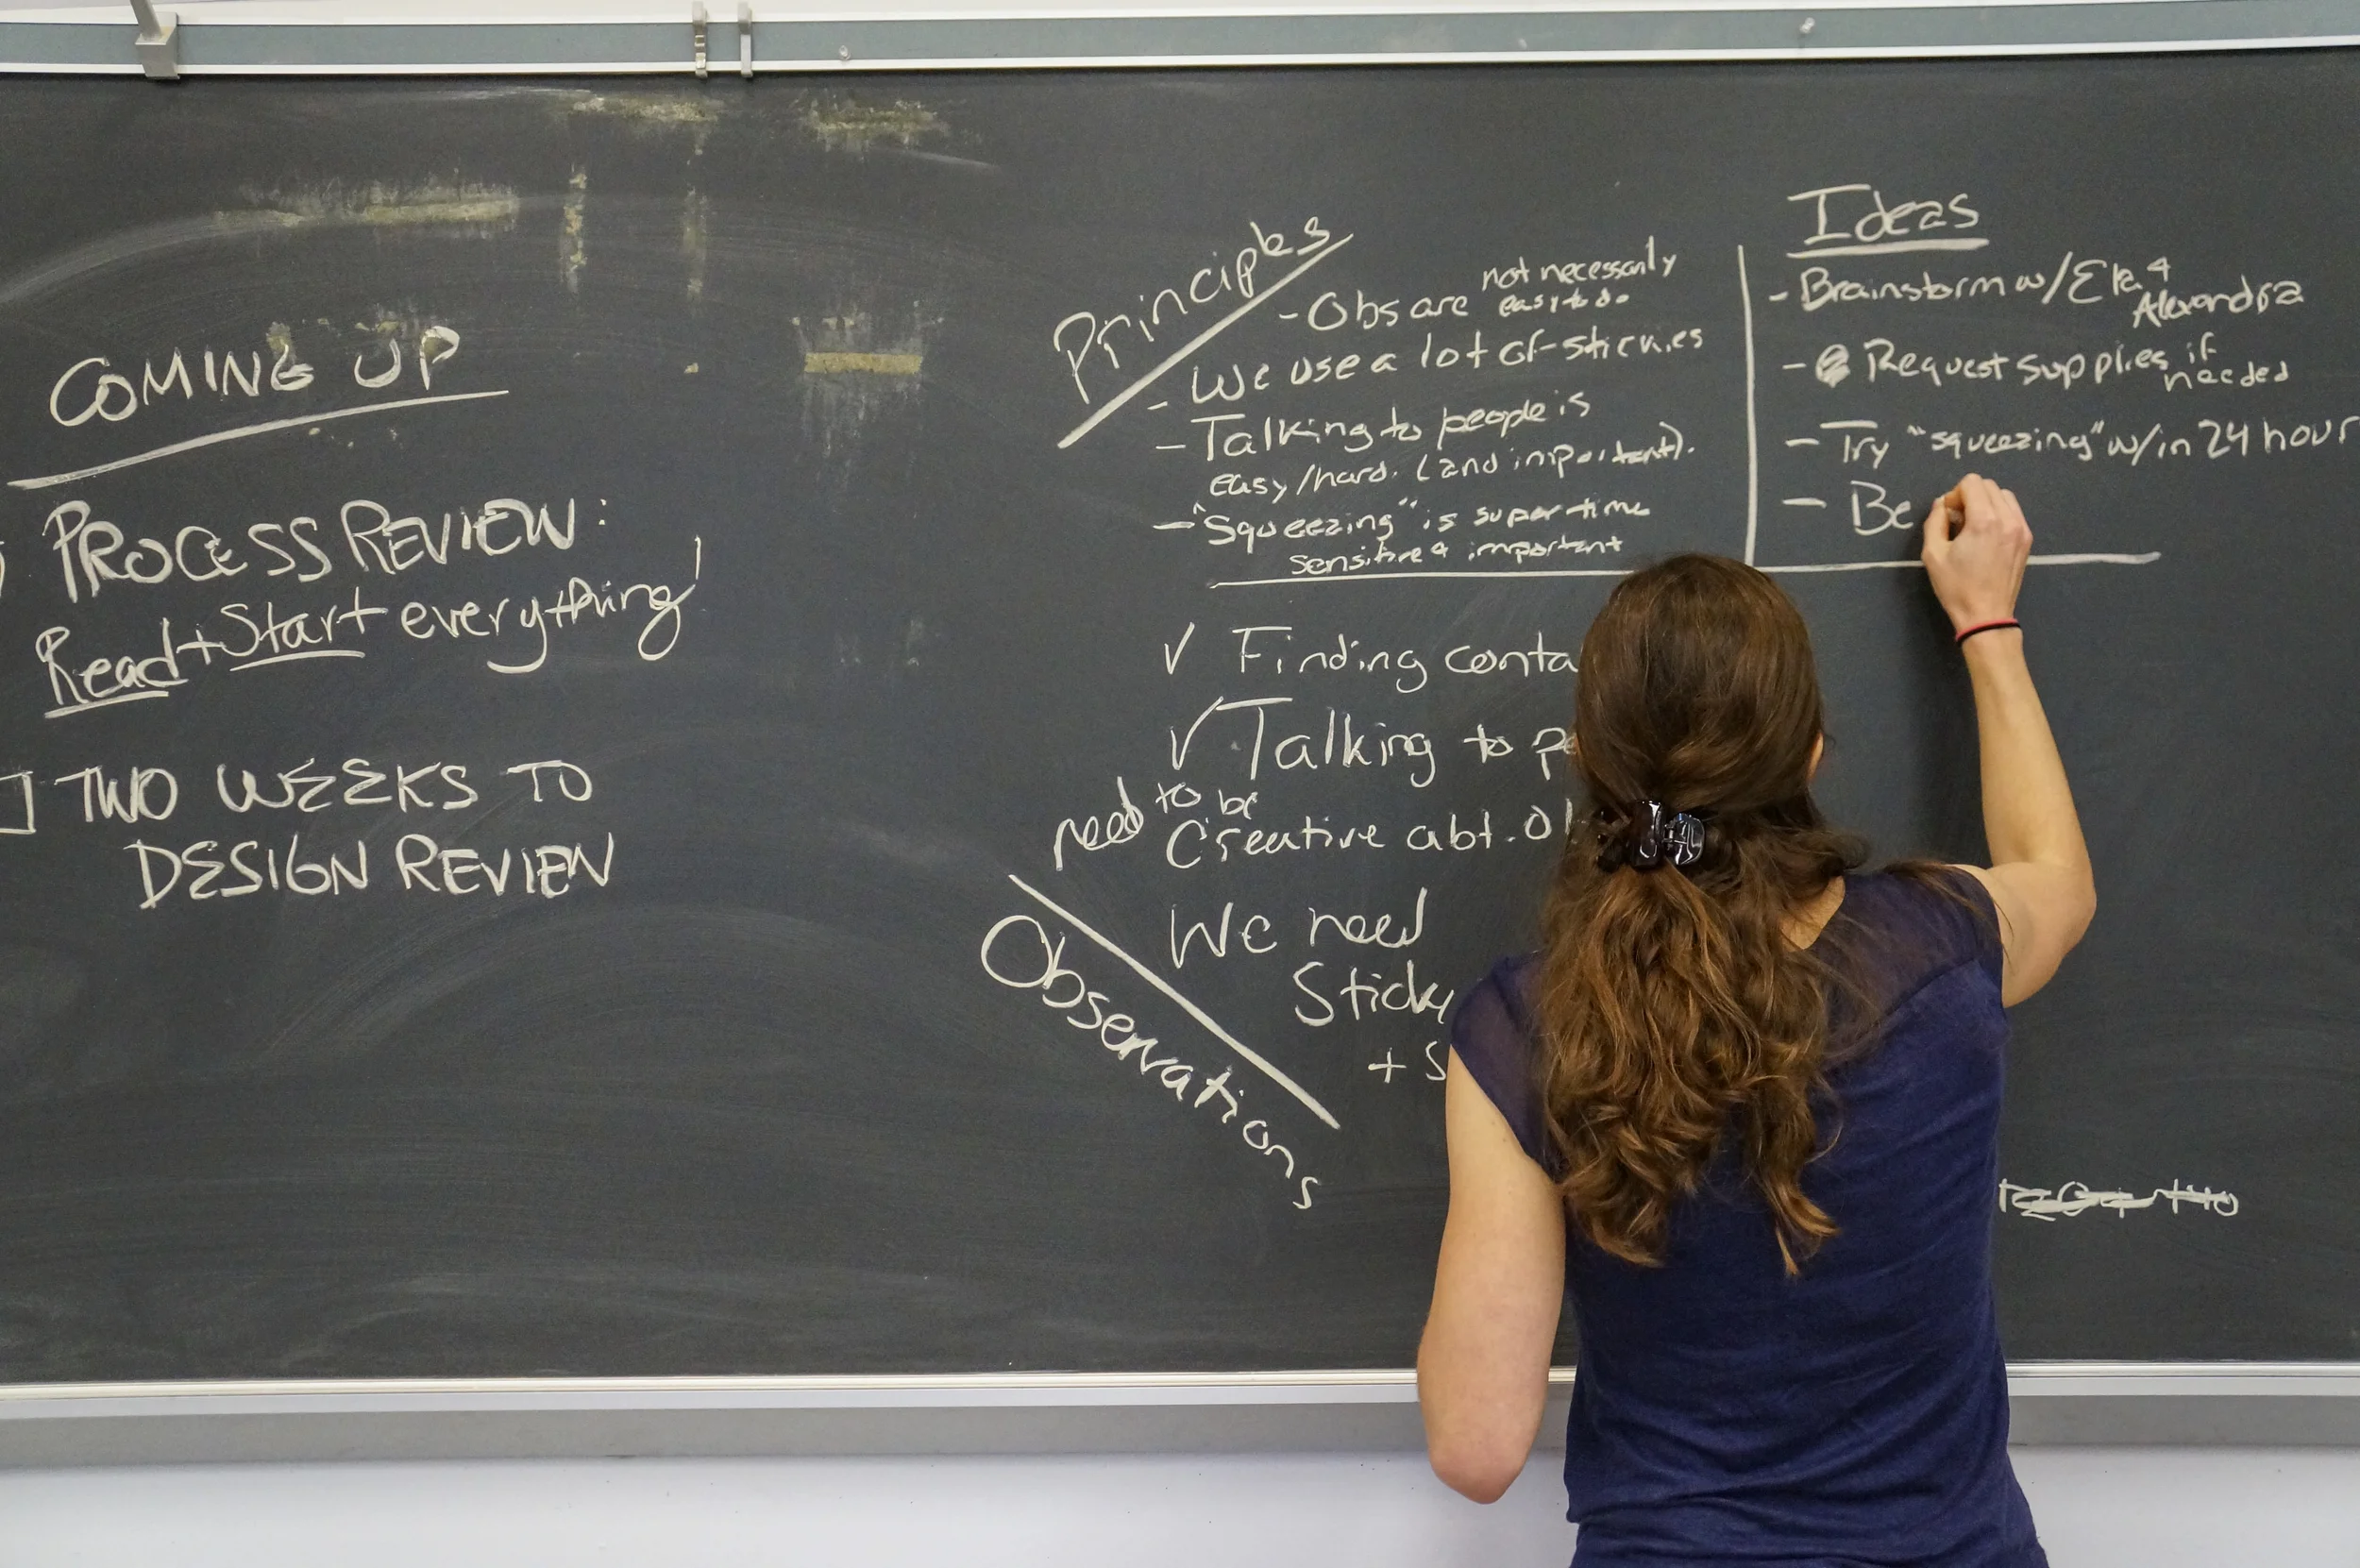 COMING UP
PROCESS REVIEW:
Read + Start everything!
TWO WEEKS TO
DESIGN REVIEW
Principles
- Obs are not necessarily
easy to do
- We use a lot of stickies
- Talking to people is
easy/hard. (and important).
- "Squeezing" is super time
sensitive & important
Ideas
- Brainstorm w/ Ela &
Alexandra
- Request supplies if
needed
- Try "squeezing" w/in 24 hour
- Be
Observations
✓ Finding conta
✓ Talking to pe
need to be
Creative abt.
We need
Sticky
+ S